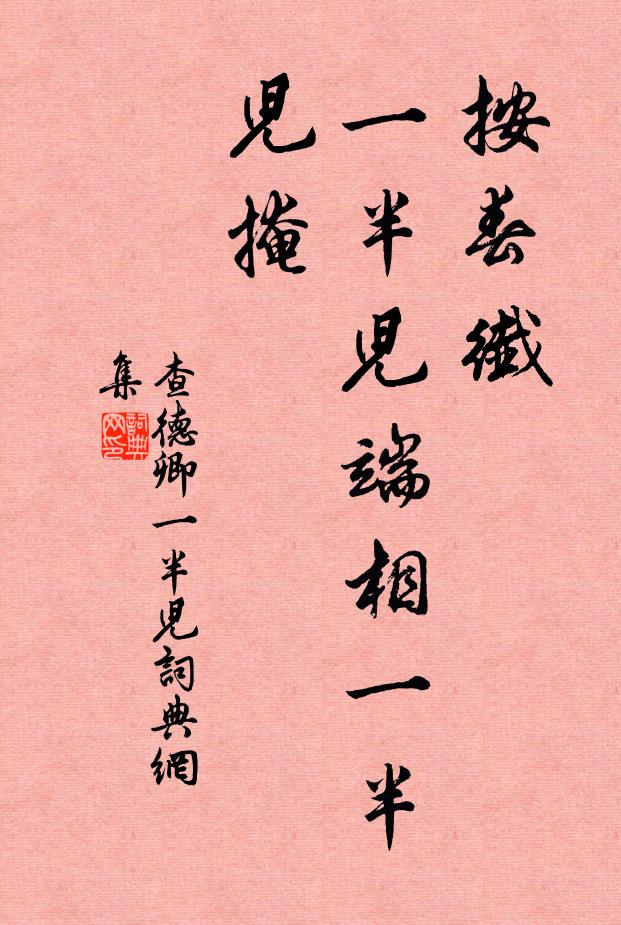 按春纖
一半兒端相一半
兒掩
查德卿一半兒詞典網
集
詞典
网印